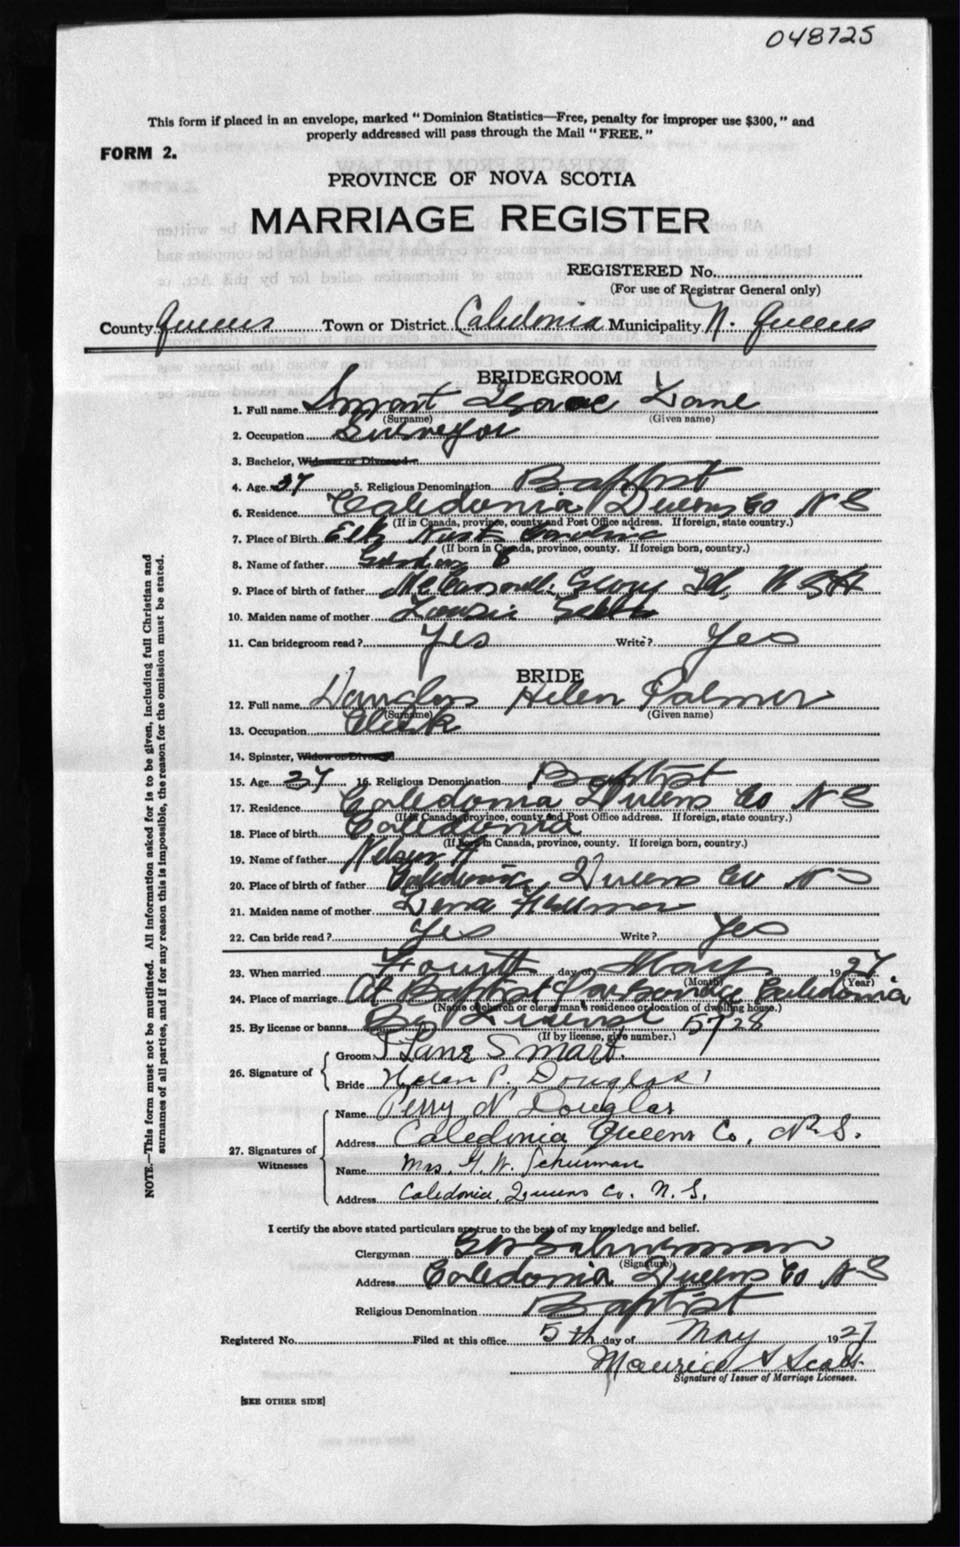 048725
This form if placed in an envelope, marked "Dominion Statistics—Free, penalty for improper use $300," and
properly addressed will pass through the Mail "FREE."
FORM 2.
PROVINCE OF NOVA SCOTIA
MARRIAGE REGISTER
REGISTERED No.
(For use of Registrar General only)
County Queens Town or District Caledonia Municipality N. Queens
BRIDEGROOM
1. Full name Smart Isaac Lane
(Surname) (Given name)
2. Occupation Surveyor
3. Bachelor, Widower or Divorced
4. Age 27 5. Religious Denomination Baptist
6. Residence Caledonia Queens Co N S
(If in Canada, province, county and Post Office address. If foreign, state country.)
7. Place of Birth Elk
(If born in Canada, province, county. If foreign born, country.)
8. Name of father
9. Place of birth of father
10. Maiden name of mother
11. Can bridegroom read? Yes Write? Yes
BRIDE
12. Full name Douglas Helen Palmer
(Surname) (Given name)
13. Occupation Clerk
14. Spinster, Widow or Divorced
15. Age 27 16. Religious Denomination Baptist
17. Residence Caledonia Queens Co N S
(If in Canada, province, county and Post Office address. If foreign, state country.)
18. Place of birth Caledonia
(If born in Canada, province, county. If foreign born, country.)
19. Name of father
20. Place of birth of father Caledonia Queens Co N S
21. Maiden name of mother
22. Can bride read? Yes Write? Yes
23. When married Fourth day of May 1927
(Month) (Year)
24. Place of marriage At Baptist Parsonage Caledonia
(Name of church or clergyman's residence or location of dwelling house.)
25. By license or banns By License 5728
(If by license, give number.)
26. Signature of
Groom I Lane Smart.
Bride Helen P. Douglas
27. Signatures of Witnesses
Name Perry N Douglas
Address Caledonia Queens Co, N.S.
Name Mrs. G. W. Schurman
Address Caledonia, Queens Co. N. S.
I certify the above stated particulars are true to the best of my knowledge and belief.
Clergyman G W Schurman
(Signature)
Address Caledonia Queens Co N S
Religious Denomination Baptist
Registered No. Filed at this office 5th day of May 1927
Maurice S
Signature of Issuer of Marriage Licenses.
[SEE OTHER SIDE]
NOTE.—This form must not be mutilated. All information asked for is to be given, including full Christian and
surnames of all parties, and if for any reason this is impossible, the reason for the omission must be stated.